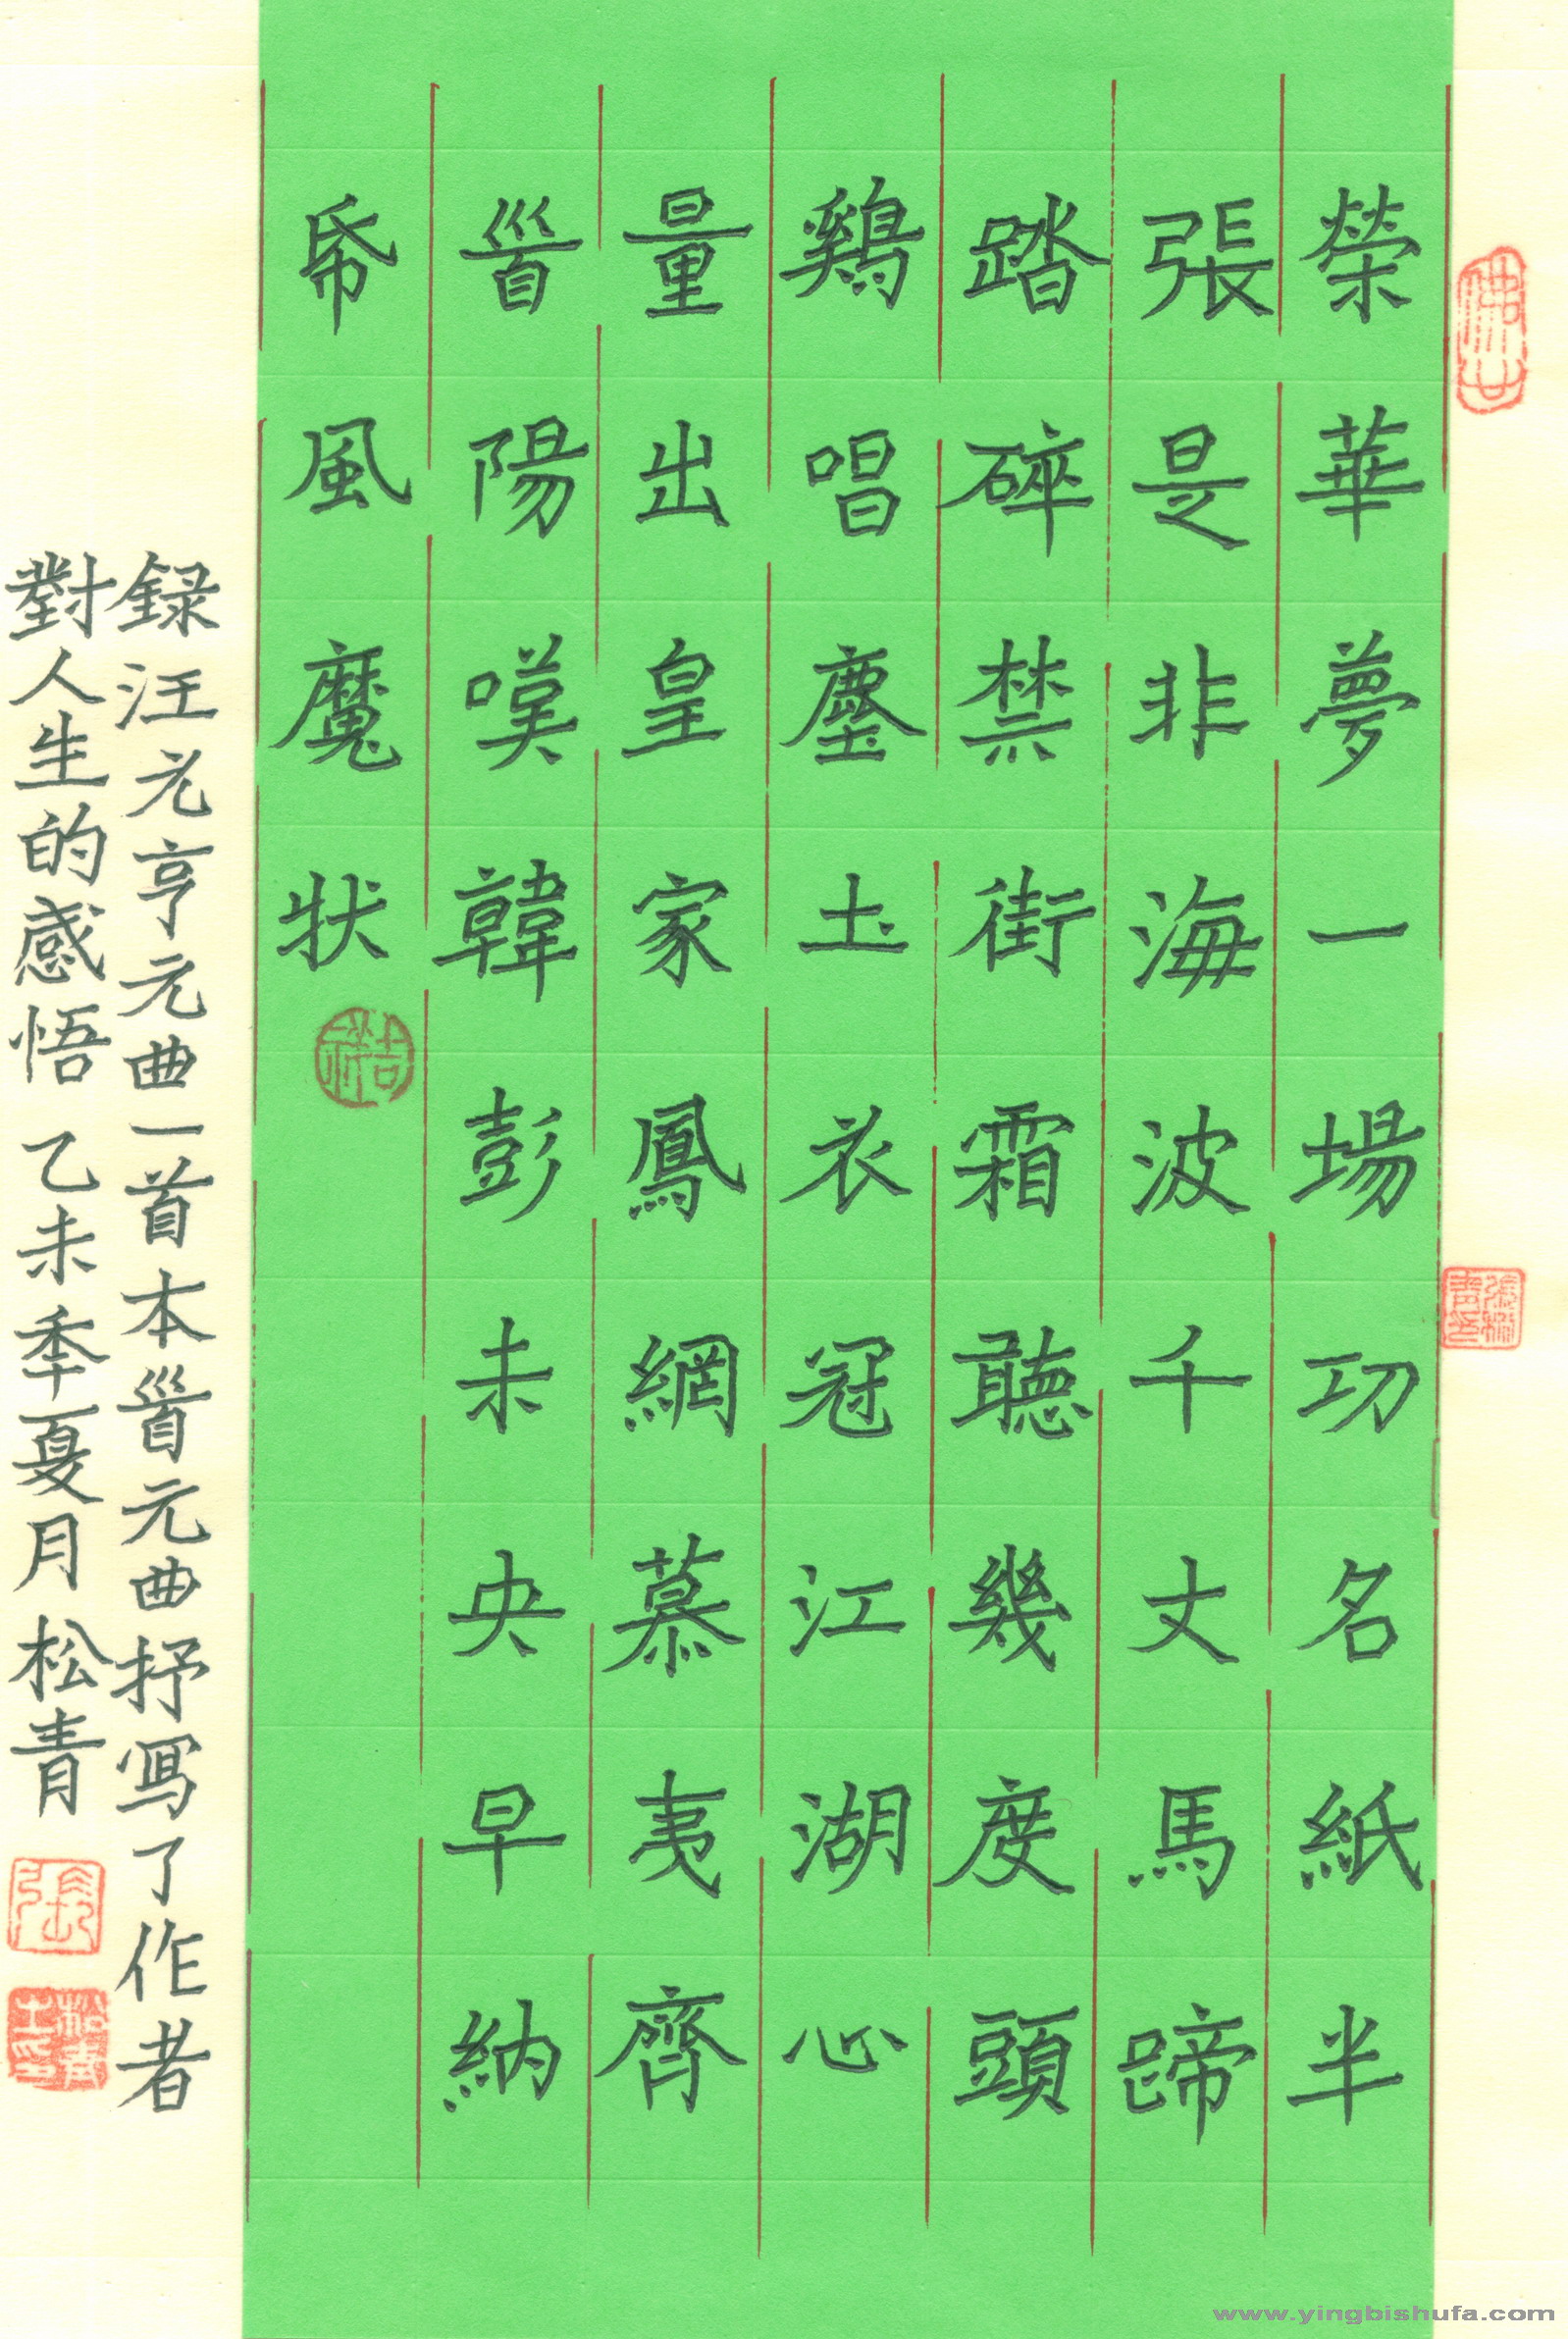 榮華夢一場功名紙半
張是非海波千丈馬蹄
踏碎禁街霜聽幾度頭
鷄唱塵土衣冠江湖心
量出皇家鳳網慕夷齊
𩠐陽嘆韓彭未央早納
帋風魔狀
吉祥
録汪元亨元曲一首本𩠐元曲抒寫了作者
對人生的感悟 乙未季夏月松青
張
www.yingbishufa.com